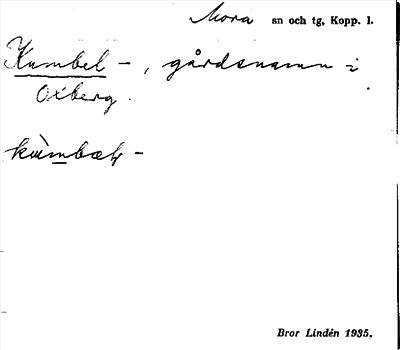 Mora sn och tg, Kopp. l.
Kumbel - , gårdsnamn i
Oxberg.
Bror Lindén 1935.